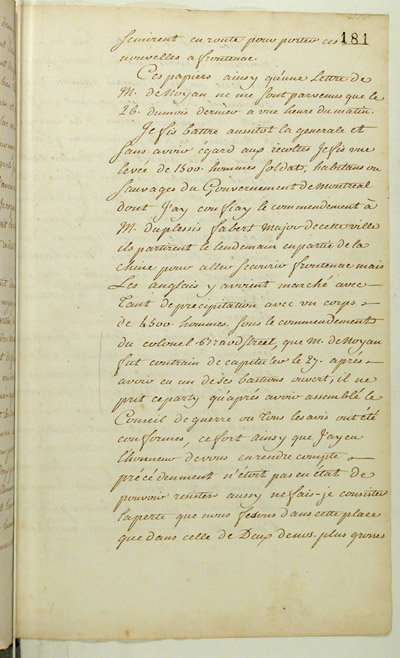 se mirent en route pour porter ces 181
nouvelles a frontenac.
Ces papiers ainsy qu'une Lettre de
M. de Noyan ne me sont parvenus que le
26. du mois dernier a une heure du matin.
Je fis battre aussitot la generale et
sans avoir égard aux recoltes Je fis une
levée de 1500 hommes soldats, habitans ou
sauvages du Gouvernement de Montreal
dont J'ay confiay le commendement à
M. duplessis fabert Major de cette ville
ils partirent le lendemain en partie de la
chine pour aller secourir frontenac mais
Les anglais y avoient marché avec
tant de precipitation avec un corps
de 4500 hommes sous le commendement
du colonel Bradstreet, que M. de Noyan
fut contrain de capituler le 27. aprés
avoir eu un de ses bastions ouvert, il ne
prit ce party qu'aprés avoir assemblé le
Conseil de guerre ou tous les avis ont été
conformes, ce fort ainsy que J'ay eu
l'honneur de vous en rendre compte
précédemment n'étoit pas en état de
pouvoir resister aussy ne fais-je consister
la perte que nous fesons dans cette place
que dans celle de Deux de nos plus grosses